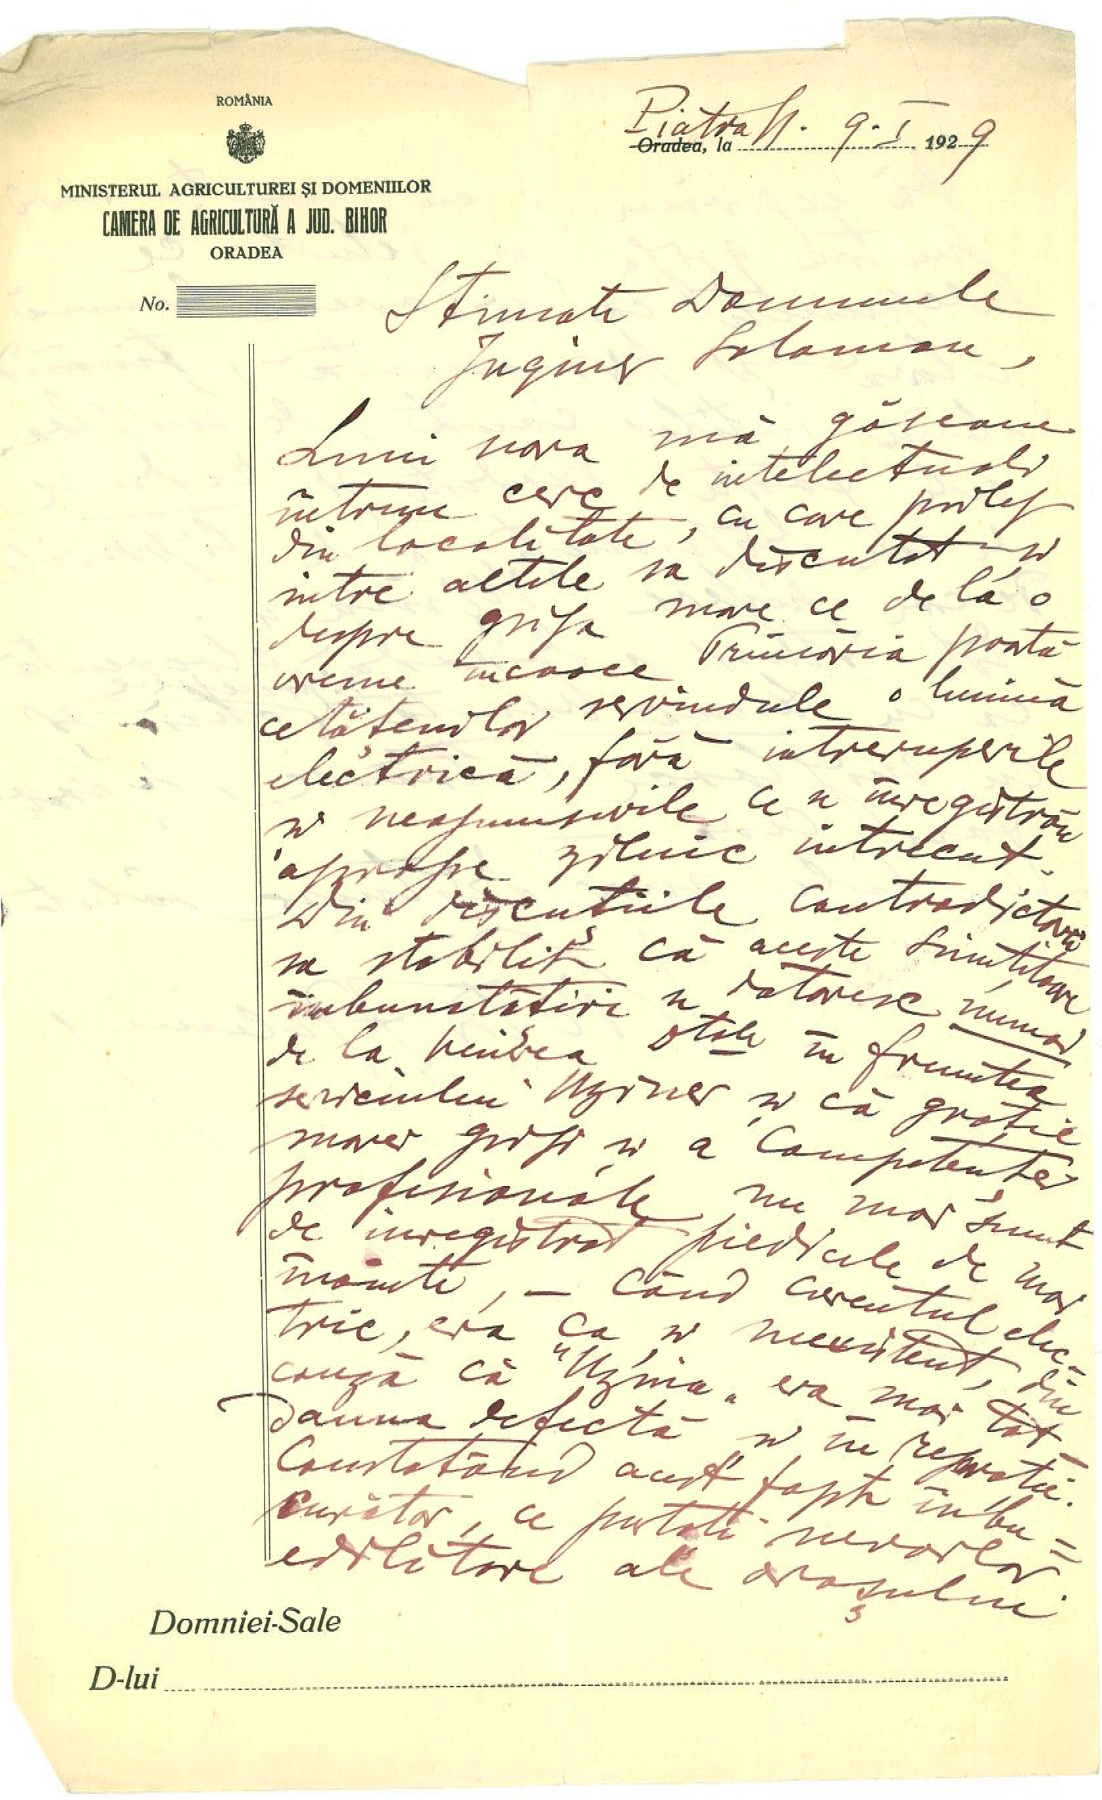 ROMÂNIA
MINISTERUL AGRICULTUREI ȘI DOMENIILOR
CAMERA DE AGRICULTURĂ A JUD. BIHOR
ORADEA
No.
Piatra N. 9.I 1929
Oradea, la
Stimate Domnule
Inginer Solomon,
Luni sara mă găseam
întrun cerc de intelectuali
din localitate, cu care prilej
intre altele sa discutat și
despre grija mare ce de la o
vreme incoace Primăria poartă
cetățenilor servindule o lumină
electrică, fără intreruperile
si neajunsurile ce se înregistrau
aproape zilnic intrecut.
Din discuțiile contradictorii
sa stabilit că aceste simțitoare
imbunatatiri se datoresc numai
de la venirea Dtale în fruntea
serviciului Uzinei si că grație
marei griji si a competenței
profesionale nu mai sunt
de inregistrat piedicile de mai
înainte, – când curentul elec=
tric, era ca si neexistent, din
cauză că "Uzina" era mai tot
dauna defectă si în reparatie.
Constatând acest fapt înbu=
curător, ce purtati nevoilor
edilitare ale orașului
Domniei-Sale
D-lui